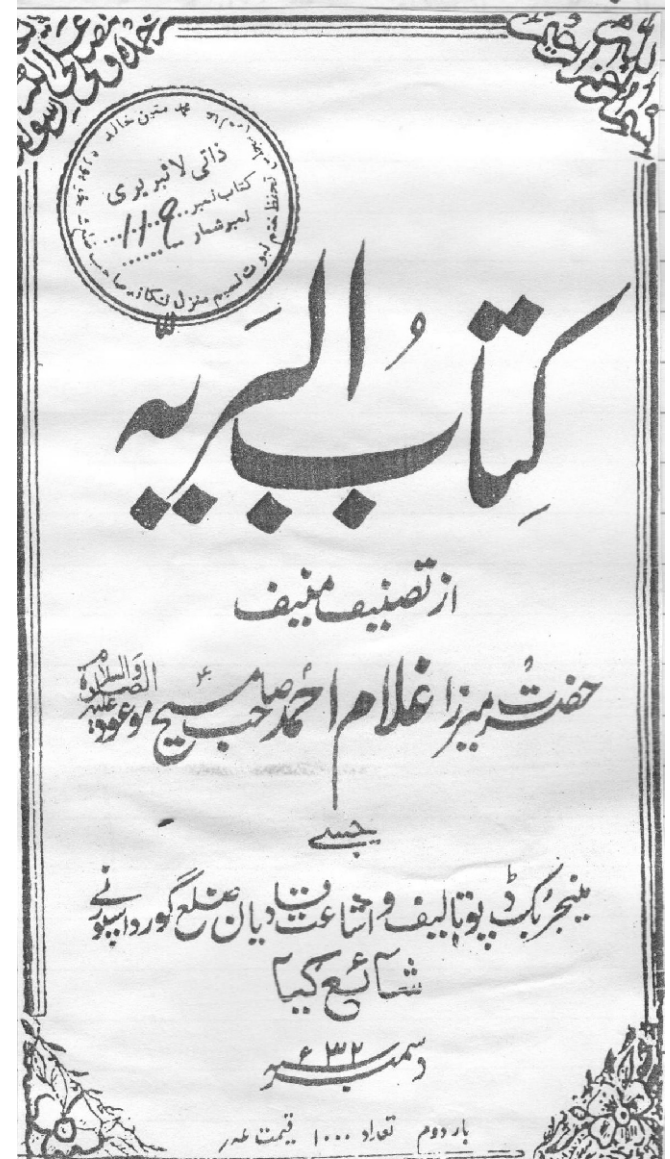 محمد متین خالد
ذاتی لائبریری
کتاب نمبر
نمبر شمار 119
کتابُ البَریہ
از تصنیف منیف
حضرت میرزا غلام احمد صاحب مسیح موعود علیہ الصلوٰۃ والسلام
جسے
مینجر بکڈپو تالیف و اشاعت قادیان ضلع گورداسپور نے
شائع کیا
دسمبر ۳۲ء
بار دوم تعداد ۱۰۰۰ قیمت